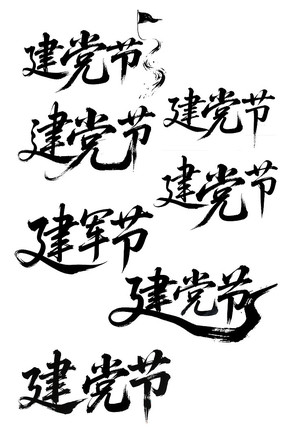 建党节
建党节
建党节
建党节
建军节
建党节
建党节